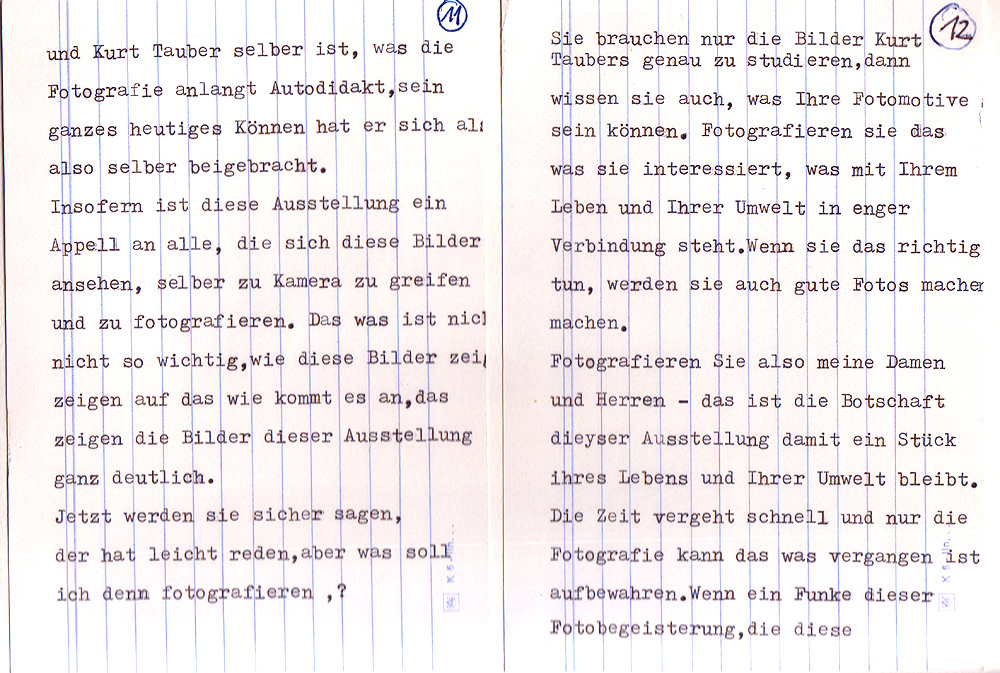 11
und Kurt Tauber selber ist, was die
Fotografie anlangt Autodidakt,sein
ganzes heutiges Können hat er sich als
also selber beigebracht.
Insofern ist diese Ausstellung ein
Appell an alle, die sich diese Bilder
ansehen, selber zu Kamera zu greifen
und zu fotografieren. Das was ist nicl
nicht so wichtig,wie diese Bilder zeig
zeigen auf das wie kommt es an,das
zeigen die Bilder dieser Ausstellung
ganz deutlich.
Jetzt werden sie sicher sagen,
der hat leicht reden,aber was soll
ich denn fotografieren ,?
12
Sie brauchen nur die Bilder Kurt
Taubers genau zu studieren,dann
wissen sie auch, was Ihre Fotomotive
sein können. Fotografieren sie das
was sie interessiert, was mit Ihrem
Leben und Ihrer Umwelt in enger
Verbindung steht.Wenn sie das richtig
tun, werden sie auch gute Fotos machen
machen.
Fotografieren Sie also meine Damen
und Herren - das ist die Botschaft
dieyser Ausstellung damit ein Stück
ihres Lebens und Ihrer Umwelt bleibt.
Die Zeit vergeht schnell und nur die
Fotografie kann das was vergangen ist
aufbewahren.Wenn ein Funke dieser
Fotobegeisterung,die diese